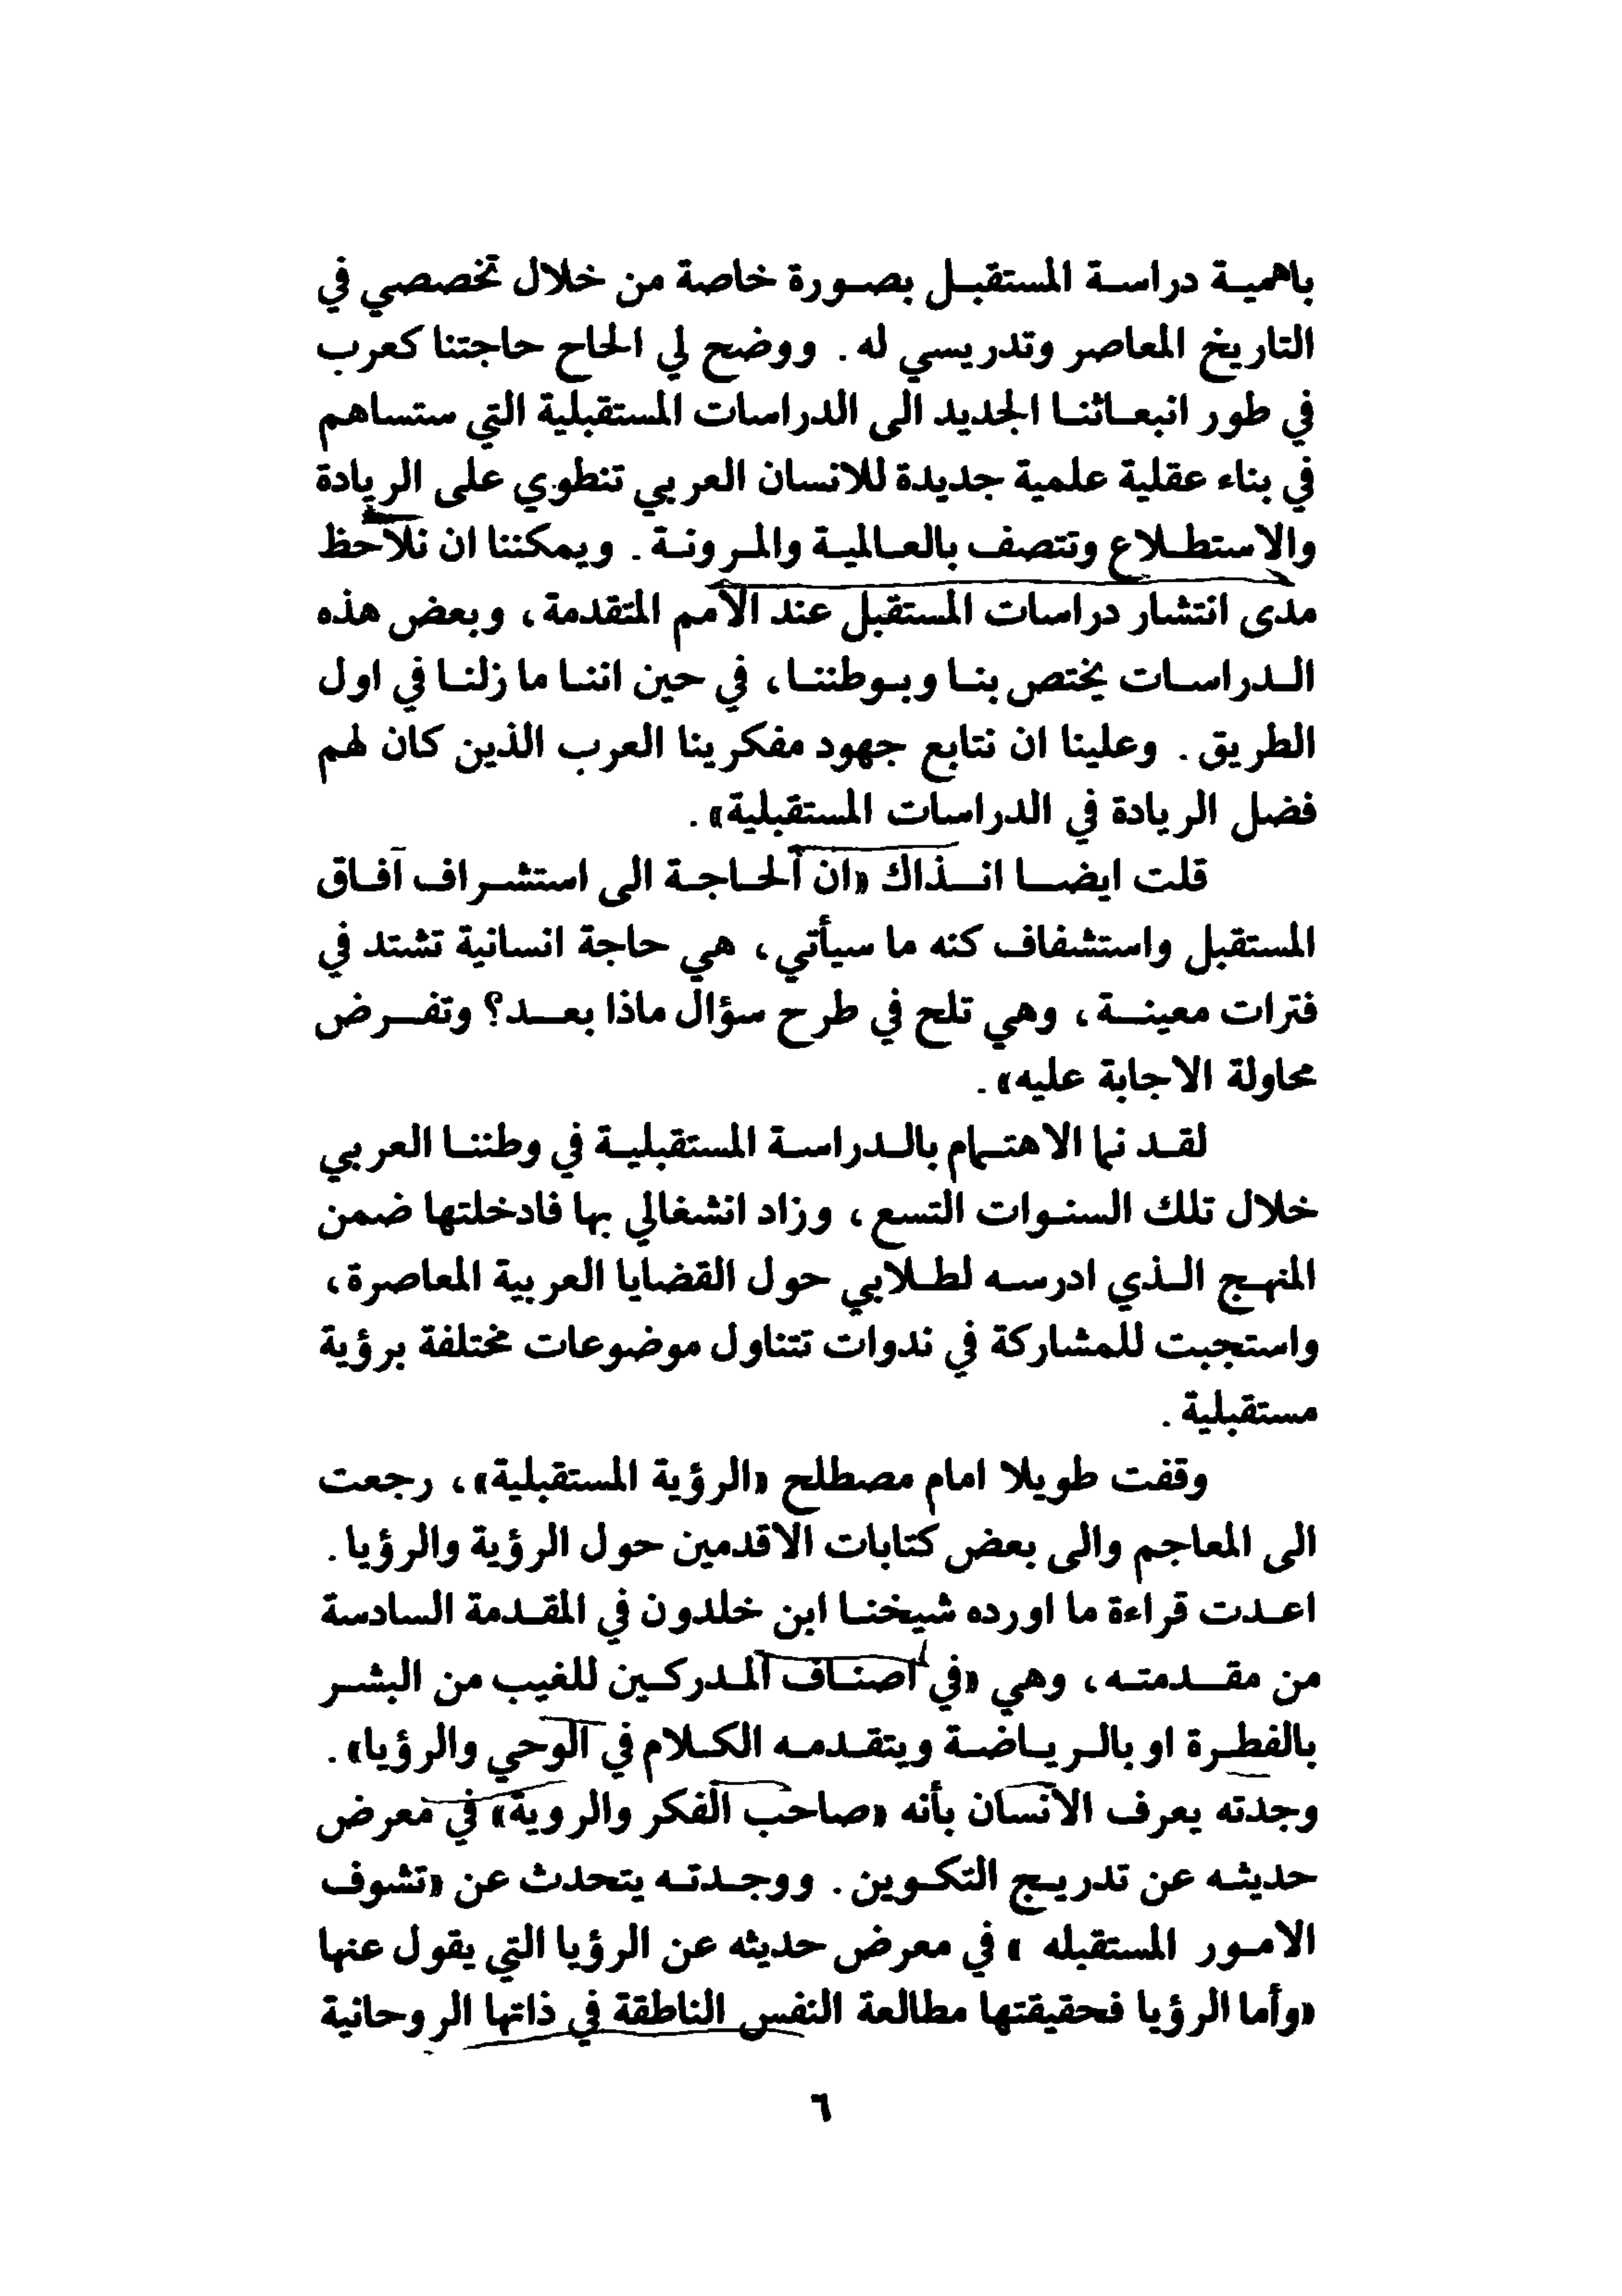 باهمية دراسة المستقبل بصورة خاصة من خلال تخصصي في
التاريخ المعاصر وتدريسي له. ووضح لي الحاح حاجتنا كعرب
في طور انبعاثنا الجديد الى الدراسات المستقبلية التي ستساهم
في بناء عقلية علمية جديدة للانسان العربي تنطوي على الريادة
والاستطلاع وتتصف بالعالمية والمرونة. ويمكننا ان نلاحظ
مدى انتشار دراسات المستقبل عند الأمم المتقدمة، وبعض هذه
الدراسات يختص بنا وبوطننا، في حين اننا ما زلنا في اول
الطريق. وعلينا ان نتابع جهود مفكرينا العرب الذين كان لهم
فضل الريادة في الدراسات المستقبلية».
قلت ايضا انذاك «ان الحاجة الى استشراف آفاق
المستقبل واستشفاف كنه ما سيأتي، هي حاجة انسانية تشتد في
فترات معينة، وهي تلح في طرح سؤال ماذا بعد؟ وتفرض
محاولة الاجابة عليه».
لقد نما الاهتمام بالدراسة المستقبلية في وطننا العربي
خلال تلك السنوات التسع، وزاد انشغالي بها فادخلتها ضمن
المنهج الذي ادرسه لطلابي حول القضايا العربية المعاصرة،
واستجبت للمشاركة في ندوات تتناول موضوعات مختلفة برؤية
مستقبلية.
وقفت طويلا امام مصطلح «الرؤية المستقبلية»، رجعت
الى المعاجم والى بعض كتابات الاقدمين حول الرؤية والرؤيا.
اعدت قراءة ما اورده شيخنا ابن خلدون في المقدمة السادسة
من مقدمته، وهي «في اصناف المدركين للغيب من البشر
بالفطرة او بالرياضة ويتقدمه الكلام في الوحي والرؤيا».
وجدته يعرف الانسان بأنه «صاحب الفكر والروية» في معرض
حديثه عن تدريج التكوين. ووجدته يتحدث عن «تشوف
الامور المستقبله » في معرض حديثه عن الرؤيا التي يقول عنها
«وأما الرؤيا فحقيقتها مطالعة النفس الناطقة في ذاتها الروحانية
٦